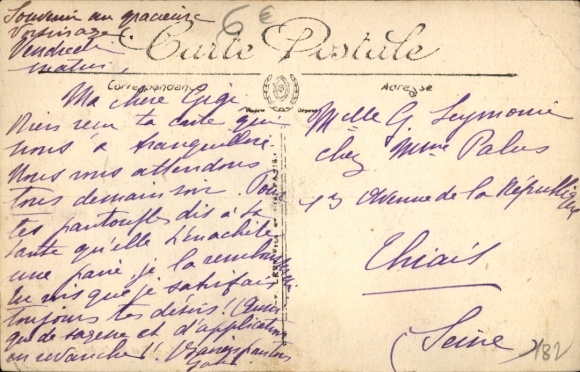 Souvenir au gracieux
Voisinage
Vendredi
matin,
6 €
Carte Postale
Correspondance
Adresse
Ma chère Gige
Biens reçu ta carte qui
nous a tranquillisé.
Nous vous attendons
tous demain soir. Pour
tes pantoufles dis à ta
tante qu'elle t'en achète
une paire, je la rembourserai
tu vois que je satisfais
toujours tes désirs!
que de sagesse et d'application
en revanche!!
Melle G Seymorie
chez Mme Palus
13 Avenue de la République
Thiais
(Seine)
182